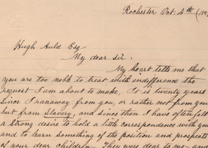 Rochester Oct. 4th
Hugh Auld Esq
My dear sir.
My heart tells me that
you are too noble to treat with indifference the
request I am about to make, It is twenty years
since I ranaway from you, or rather not from you
but from Slavery, and since then I have often felt
a strong desire to hold a little correspondence with you
and to learn something of the position and prospects
of your dear children. They were dear to me - and